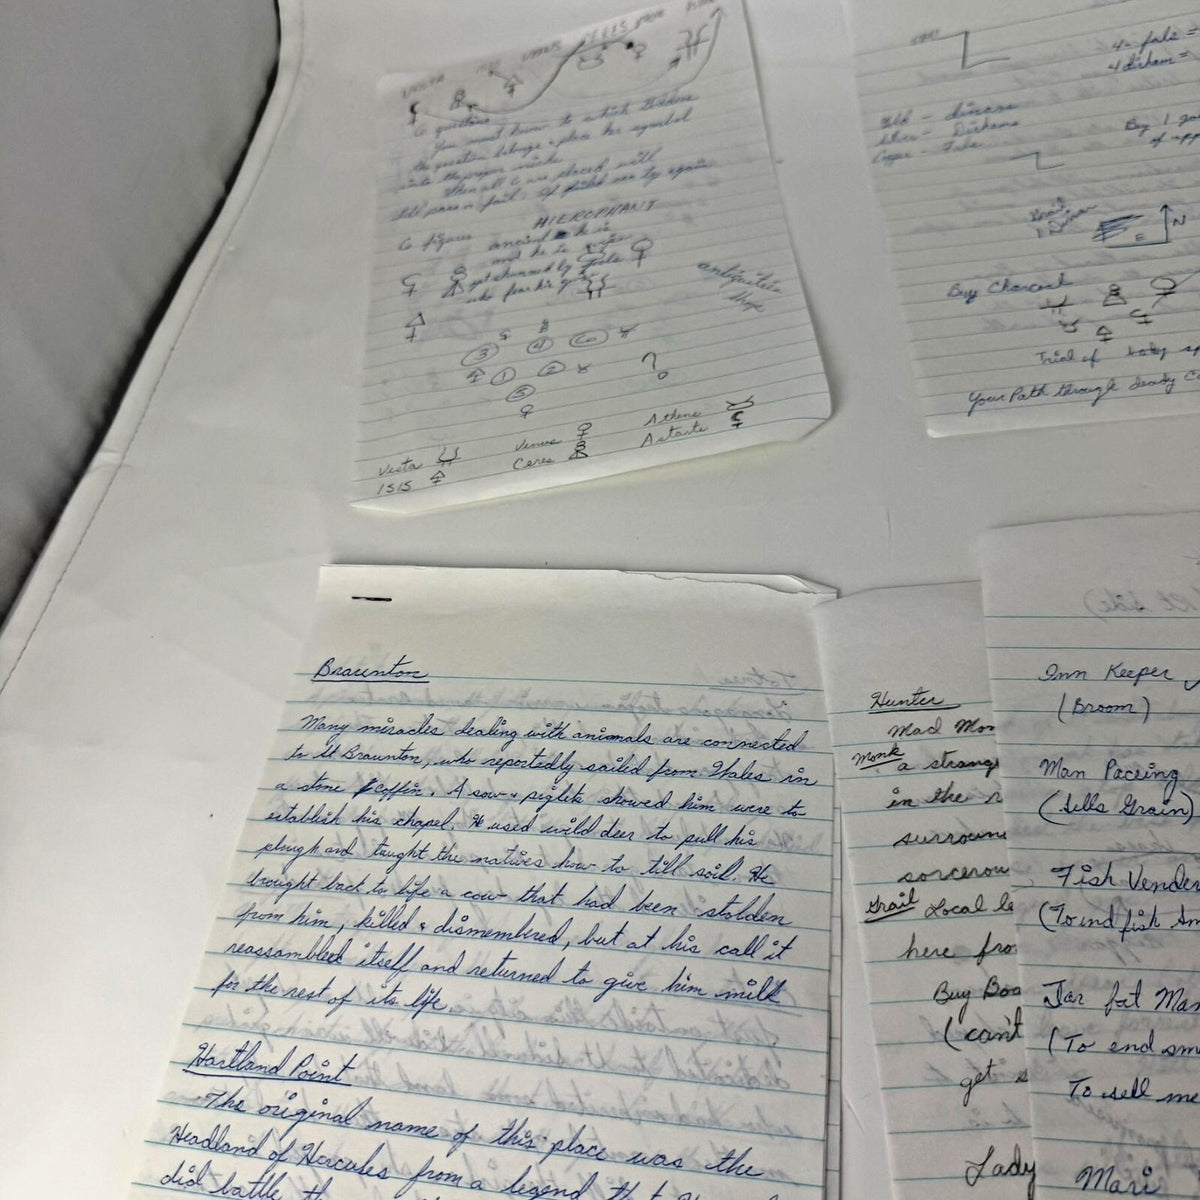 6 questions
You must know to which
the question belongs & place her symbol
into the proper niche.
When all 6 are placed will
HIEROPHANT
6 figures
ancient he is
and he is
get stunned by
who fear his
antiquities
shop
3
4
6
1
2
?
5
Vesta
Venus
Athene
ISIS
Ceres
Astarte
4 fals =
4 dirham =
Gold - dinars
Silver - Dirhams
Copper - Fals
Buy 1
of
N
Buy Charcoal
Trial of body
Your Path through deadly
Braunton
Many miracles dealing with animals are connected
to St Braunton, who reportedly sailed from Wales in
a stone coffin. A sow & piglets showed him were to
establish his chapel. He used wild deer to pull his
plough and taught the natives how to till soil. He
brought back to life a cow that had been stolden
from him, killed & dismembered, but at his call it
reassembled itself and returned to give him milk
for the rest of its life.
Hartland Point
The original name of this place was the
Headland of Hercules from a legend that
did battle
Hunter
Mad Mon
Monk
a strange
in the
surroun
sorcerou
Grail
Local le
here fro
Buy Boa
(can't
get s
Lady
Inn Keeper
(Broom)
Man Pacing
(Sells Grain)
Fish Vender
(To ind fish
Jar fat Man
(To end sm
To sell me
Mari